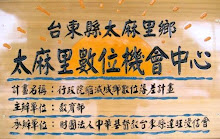 台東縣太麻里鄉
太麻里數位機會中心
計畫名稱：行政院縮減城鄉數位落差計畫
主辦單位：教育部
承辦單位：財團法人中華基督教台東縣